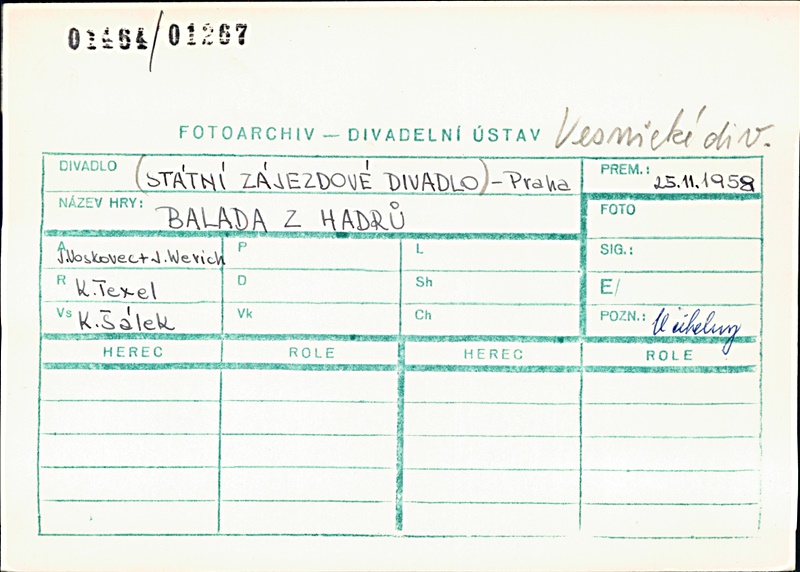 01464/01267
FOTOARCHIV — DIVADELNÍ ÚSTAV Vesnické div.
DIVADLO (STÁTNÍ ZÁJEZDOVÉ DIVADLO) - Praha
PREM.: 25.11.1958
NÁZEV HRY: BALADA Z HADRŮ
FOTO
A J.Voskovec + J.Werich
P
L
SIG.:
R K.Texel
D
Sh
E/
Vs K.Šálek
Vk
Ch
POZN.:
HEREC ROLE HEREC ROLE